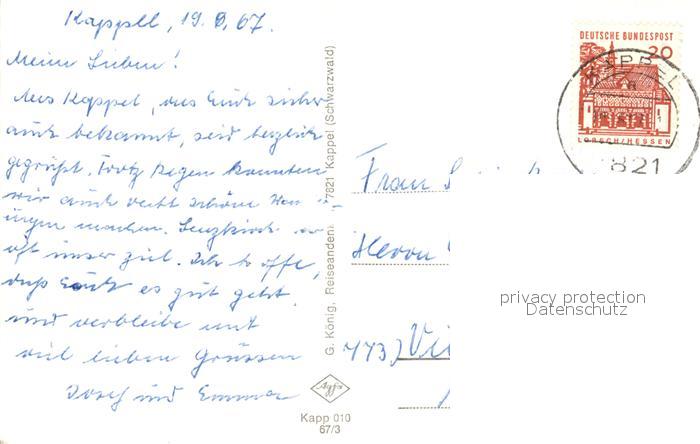 Kappel, 19.9.67.
Meine Lieben!
Aus Kappel, das Euch sicher
auch bekannt, seid herzlich
gegrüßt. Trotz Regen konnten
wir auch recht schöne Wan-
ungen machen. Lenzkirch war
oft unser Ziel. Ich hoffe,
daß Euch es gut geht
und verbleibe mit
viel lieben Grüssen
Josef und Emma
G. König, Reiseandenken, 7821 Kappel (Schwarzwald)
Agfa
Kapp 010
67/3
DEUTSCHE BUNDESPOST
20
LORSCH/HESSEN
KAPPEL
7821
Frau
Herrn
773) Vi
privacy protection
Datenschutz